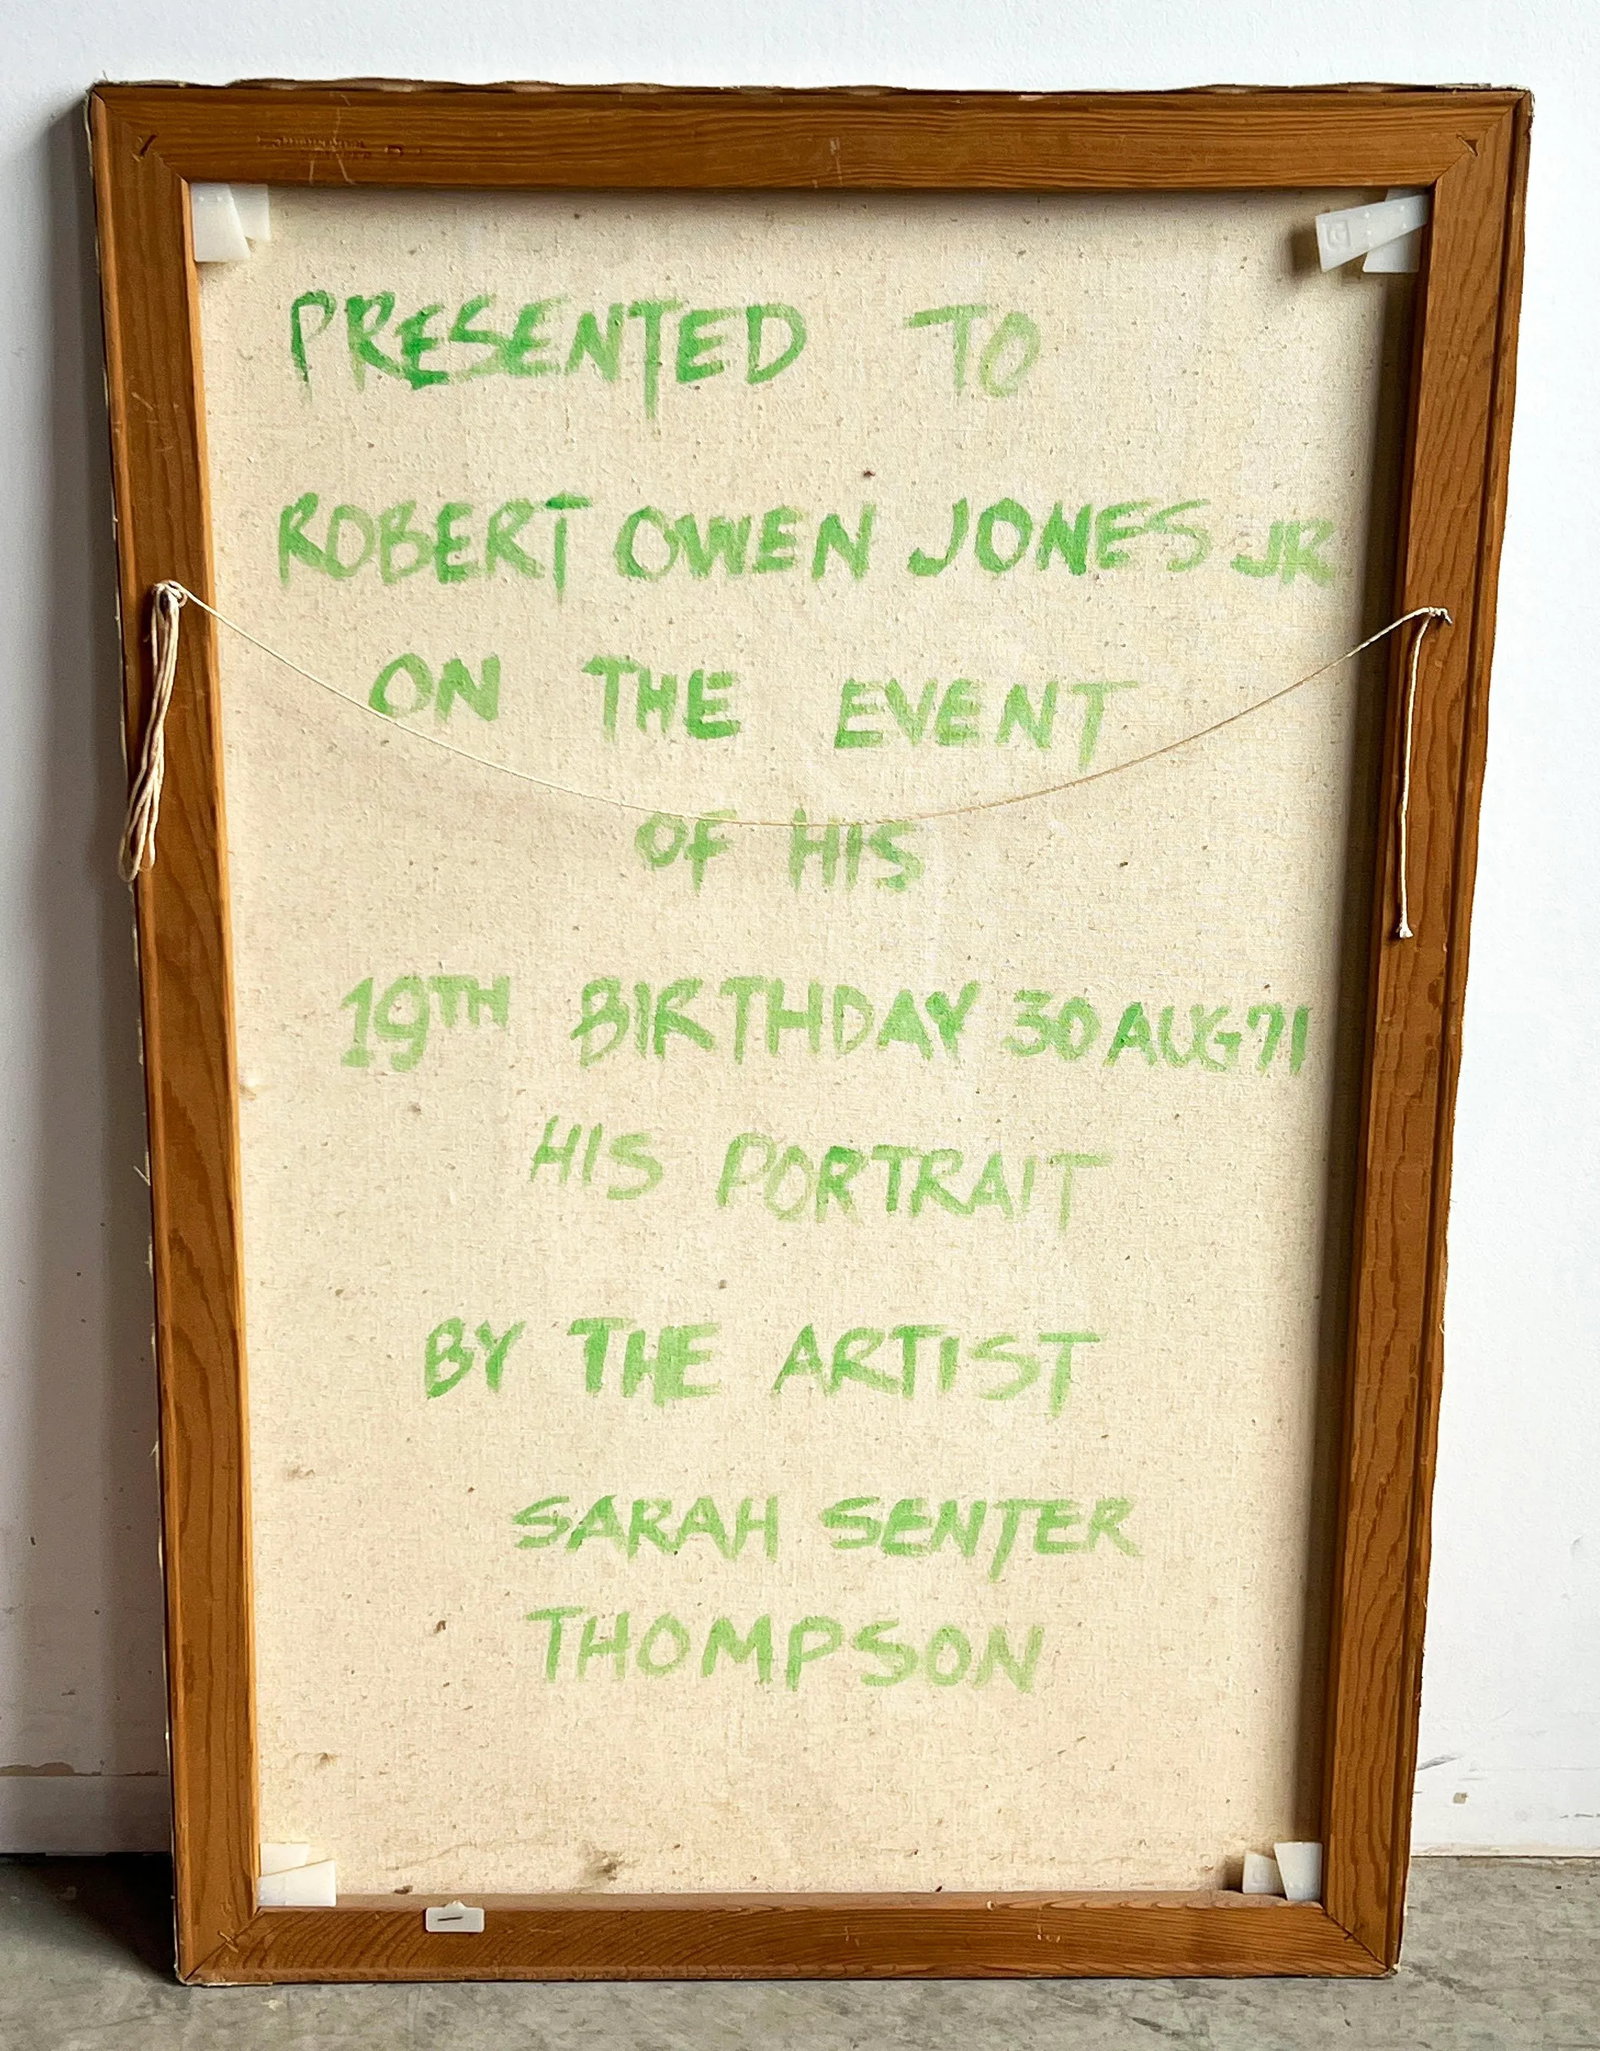 PRESENTED TO
ROBERT OWEN JONES JR
ON THE EVENT
OF HIS
19TH BIRTHDAY 30 AUG 71
HIS PORTRAIT
BY THE ARTIST
SARAH SENTER
THOMPSON